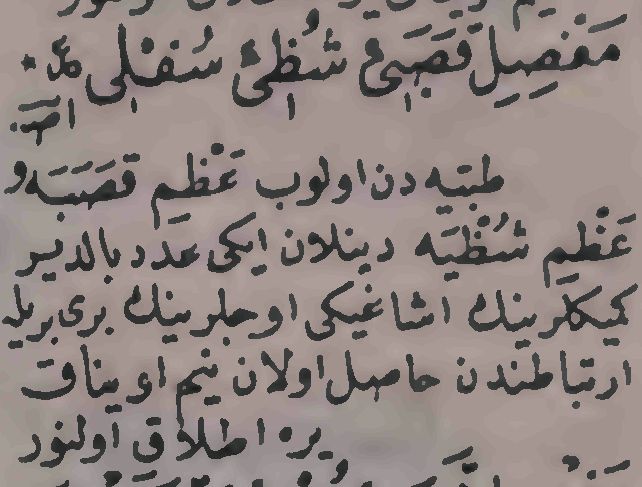 مَفْصِلِ قَصَبِیِّ شُظْیِّ سُفْلی
طبیه دن اولوب عَظْمِ قَصَبَه و
عَظْمِ شُظْیَه دینلان ایکی عدد بالدیر
کمیکلرینك اشاغیکی اوجلرینك بری بریله
ارتباطندن حاصل اولان نیم اویناق
یره اطلاق اولنور